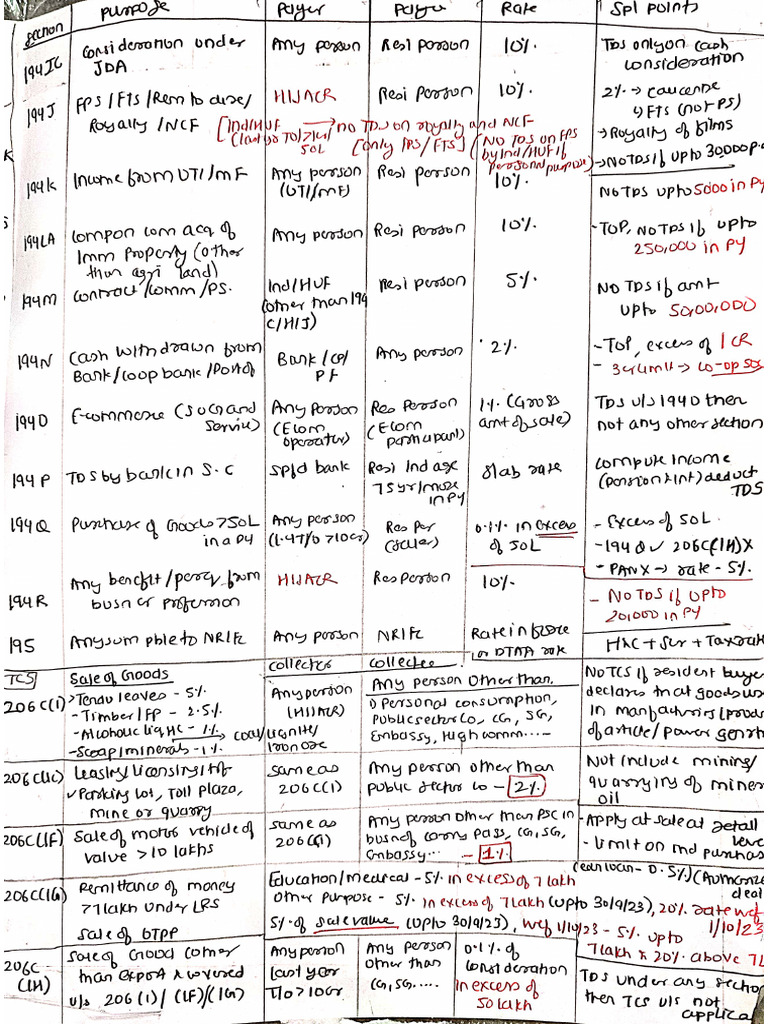 section Purpose Payer Payee Rate Spl points
194IC Consideration under Any person Resi person 10% TDS only on cash
JDA consideration
194J FPS/FTS/Rem to dire/ HIJACR Resi person 10% 2% → callcentre
Royalty/NCF → FTS (not PS)
[Ind/HUF → no TDS on royalty and NCF → Royalty of films
(last yr TO) > 1cr/ [only FPS/FTS] (NO TDS on FPS
50L by Ind/HUF if
personal purpose) → NO TDS if upto 30,000 p.a
194K Income from UTI/MF Any person Resi person 10% NO TDS upto 5000 in PY
(UTI/MF)
194LA Compon com acq of Any person Resi person 10% - TOP, NO TDS if upto
Imm property (other 250,000 in PY
than agri land)
194M Contract/comm/PS. Ind/HUF Resi person 5% NO TDS if amt
(other than 194 upto 50,00,000
C/H/J)
194N Cash withdrawn from Bank/CB/ Any person 2% - TOP, excess of 1 CR
Bank/coop bank/Postof PF - 3cr limit → co-op soc
194O E-commerce (Goods and Any Person Res Person 1% (Gross TDS u/s 194O then
Service) (Ecom (Ecom amt of sale) not any other section
operator) participant)
194P TDS by bank in S.C Spfd bank Resi Ind age slab rate compute income
75yr/more (Pension+Int) deduct
in PY TDS
194Q Purchase of Goods >50L Any person Res Per 0.1% in excess - Excess of 50L.
in a PY (L.Y T/O >10cr) (seller) of 50L - 194Q ✓ 206C(1H)X
- PANX → rate - 5%
194R Any benefit/perq from HIJACR Res person 10% - NO TDS if upto
busn or profession 20,000 in PY
195 Any sum pble to NR/Fc Any person NR/Fc Rate in force H&C + Sur + Tax rate
or DTAA rate
TCS Sale of Goods collector collectee
206C(1) → Tendu leaves - 5% Any person Any person other than. NO TCS if resident buyer
- Timber/FP - 2.5% (HIJACR) 1) Personal consumption, declares that goods us
- Alcoholic liq, HC - 1% → coal/lignite/ Public sector Co, CG, SG, in manfacturing/produ
- Scrap/minerals - 1% Iron ore Embassy, High comm.... of article/power genrt
206C(1C) Leasing/Licensing/trf same as Any person other than Not include mining/
✓ Parking lot, Toll Plaza, 206C(1) public sector co - 2% quarrying of miner
mine or quarry oil
206C(1F) Sale of motor vehicle of same as Any person other than PSC in - Apply at sale at retail
value > 10 lakhs 206C(1) busn of carry pass, CG, SG, level
Embassy... - 1% - limit on ind purchas
206C(1G) Remittance of money Education/medical - 5% in excess of 7 lakh (edn loan - 0.5%) (Authorize
>7 lakh under LRS other purpose - 5% in excess of 7 lakh (upto 30/9/23), 20% rate wef deal
1/10/23
Sale of OTPP 5% of sale value (upto 30/9/23), wef 1/10/23 - 5% upto
7 lakh & 20% above 7L
206C Sale of Good (other Any person Any person 0.1% of TDS under any sectio
(1H) than export & covered last year other than consideration then TCS u/s not
u/s 206(1)/(1F)/(1G) T/o > 10cr CG, SG..... in excess of applica
50 lakh